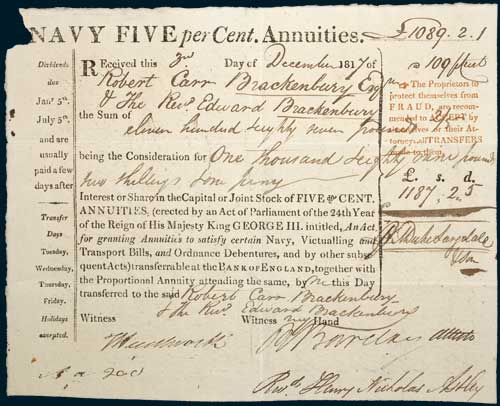 NAVY FIVE per Cent. Annuities. £1089.2.1
Dividends
due
Jany. 5th.
July 5th.
and are
usually
paid a few
days after
Transfer
Days
Tuesday,
Wednesday,
Thursday,
Friday.
Holidays
excepted.
Received this 3rd Day of December 1817 of
Robert Carr Brackenbury Esqr
& The Revd Edward Brackenbury
the Sum of
eleven hundred eighty seven pounds
being the Consideration for One thousand eighty nine pounds
two shillings & one penny
Interest or Share in the Capital or Joint Stock of FIVE per CENT.
ANNUITIES, (erected by an Act of Parliament of the 24th Year
of the Reign of His Majesty King GEORGE III. intitled, An Act,
for granting Annuities to satisfy certain Navy, Victualling and
Transport Bills, and Ordnance Debentures, and by other subse-
quent Acts) transferrable at the BANK of ENGLAND, together with
the Proportional Annuity attending the same, by me this Day
transferred to the said Robert Carr Brackenbury
& the Revd Edward Brackenbury
Witness Witness my Hand
Barclay
Revd. Henry Nicholas Astley
109
The Proprietors to
protect themselves from
FRAUD, are recom-
mended to ACCEPT by
themselves or their At-
tornies, all TRANSFERS
made to them.
£. s. d.
1187.2.5